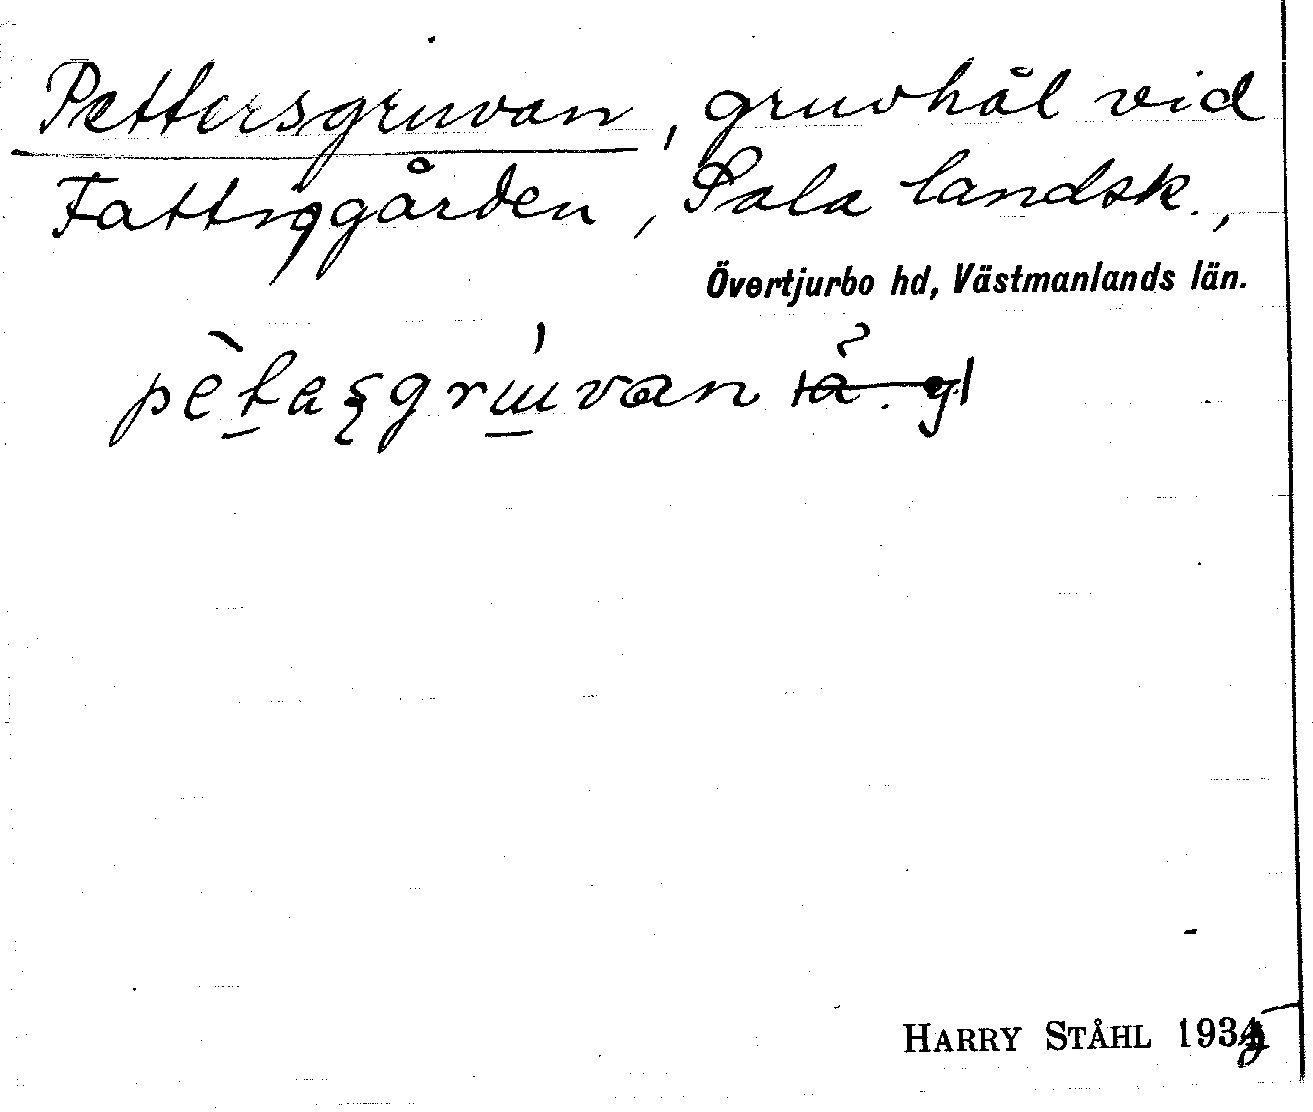 Pettersgruvan, gruvhål vid
Fattiggården, Sala landsk.,
Övertjurbo hd, Västmanlands län.
pètaşgrɯ́van
HARRY STÅHL 193